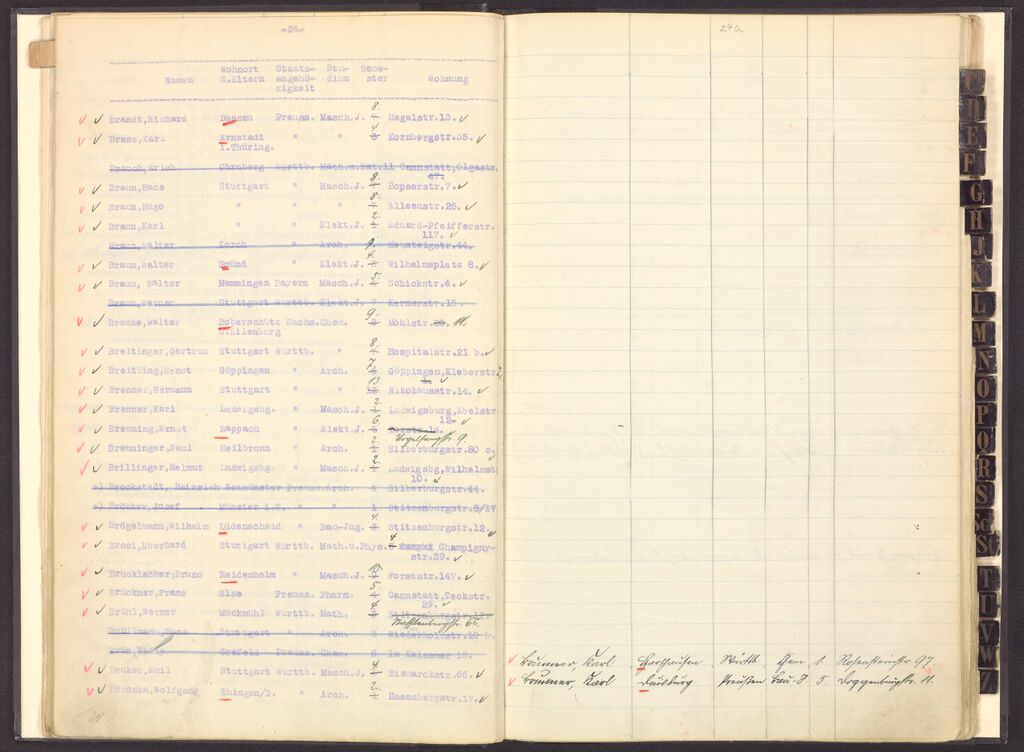 -24-
Namen Wohnort d.Eltern Staats-angehö-rigkeit Stu-dium Seme-ster Wohnung
8.
Brandt,Richard Dessau Preuss. Masch.J. Hegelstr.13.
4.
Brass,Karl Arnstadt " " 3 Kornbergstr.35.
i.Thüring.
Brauch,Erich Ohrnberg Württb. Math.u.Nat.11 Cannstatt,Olgastr.
47.
8.
Braun,Hans Stuttgart " Masch.J. 7 Hopserstr.7.
8.
Braun,Hugo " " " Alleenstr.25.
2.
Braun,Karl " " Elekt.J. 1 Eduard-Pfeifferstr.
117.
Braun,Walter Lorch " Arch. 9. Heusteigstr.44.
4.
Braun,Walter Gmünd " Elekt.J. 3 Wilhelmsplatz 8.
5
Braun, Walter Memmingen Bayern Masch.J. Schickstr.4.
Braun,Werner Stuttgart Württb. Elekt.J. 7 Kernerstr.15.
9.
Brause,Walter Doberschütz Sachs. Chem. 8 Mohlstr. 11.
b.Eilenburg
8.
Breitinger,Gertrud Stuttgart Württb. " Hospitalstr.21 b.
7.
Breitling,Ernst Göppingen " Arch. 6 Göppingen,Kleberstr.
13.
Brenner,Hermann Stuttgart " " 12 Nikolausstr.14.
2.
Brenner,Karl Ludwigsbg. " Masch.J. 1 Ludwigsburg,Abelstr
12.
6.
Breuning,Ernst Rappach " Elekt.J. 5
Vogelsangstr. 9.
2.
Breuninger,Paul Heilbronn " Arch. 1 Silberburgstr.80 c.
2.
Brillinger,Helmut Ludwigsbg. " Masch.J. 1 Ludwigsbg,Wilhelmst
10.
+) Brockstedt, Heinrich Neumünster Preuss. Arch. 4 Silberburgstr.44.
+) Bröcker,Josef Münster i.W. " " 1 Stitzenburgstr.8/IV
4.
Brögelmann,Wilhelm Lüdenscheid " Bau-Jng. 3 Stitzenburgstr.12.
4
Brosi,Eberhard Stuttgart Württb. Math.u.Phys. 3 Champigny-
str.39.
Brucklacher,Bruno Heidenheim " Masch.J. Forststr.147.
5.
Brückner,Franz Elze Preuss. Pharm. 4 Cannstatt,Teckstr.
29.
4.
Brühl,Werner Möckmühl Württb. Math. 3 Stitzenburgstr.
66.
Stuttgart " Arch. 5 Wiederholdstr.10 b.
Crefeld Preuss. Chem. 6 Im Kaisemer 15.
4.
Bruker,Emil Stuttgart Württb. Masch.J. Bismarckstr.66.
2.
Bruoska,Wolfgang Ehingen/D. " Arch. 1 Hasenbergstr.17.
24
24a
Brunner Karl Württb Chem 1 Rosensteinstr 97
Brunner, Karl Duisburg Preußen Bau-J 5 11.
C
D
E
F
G
H
J
K
L
M
N
O
P
Q
R
S
Sch
St
T
U
V
W
Z